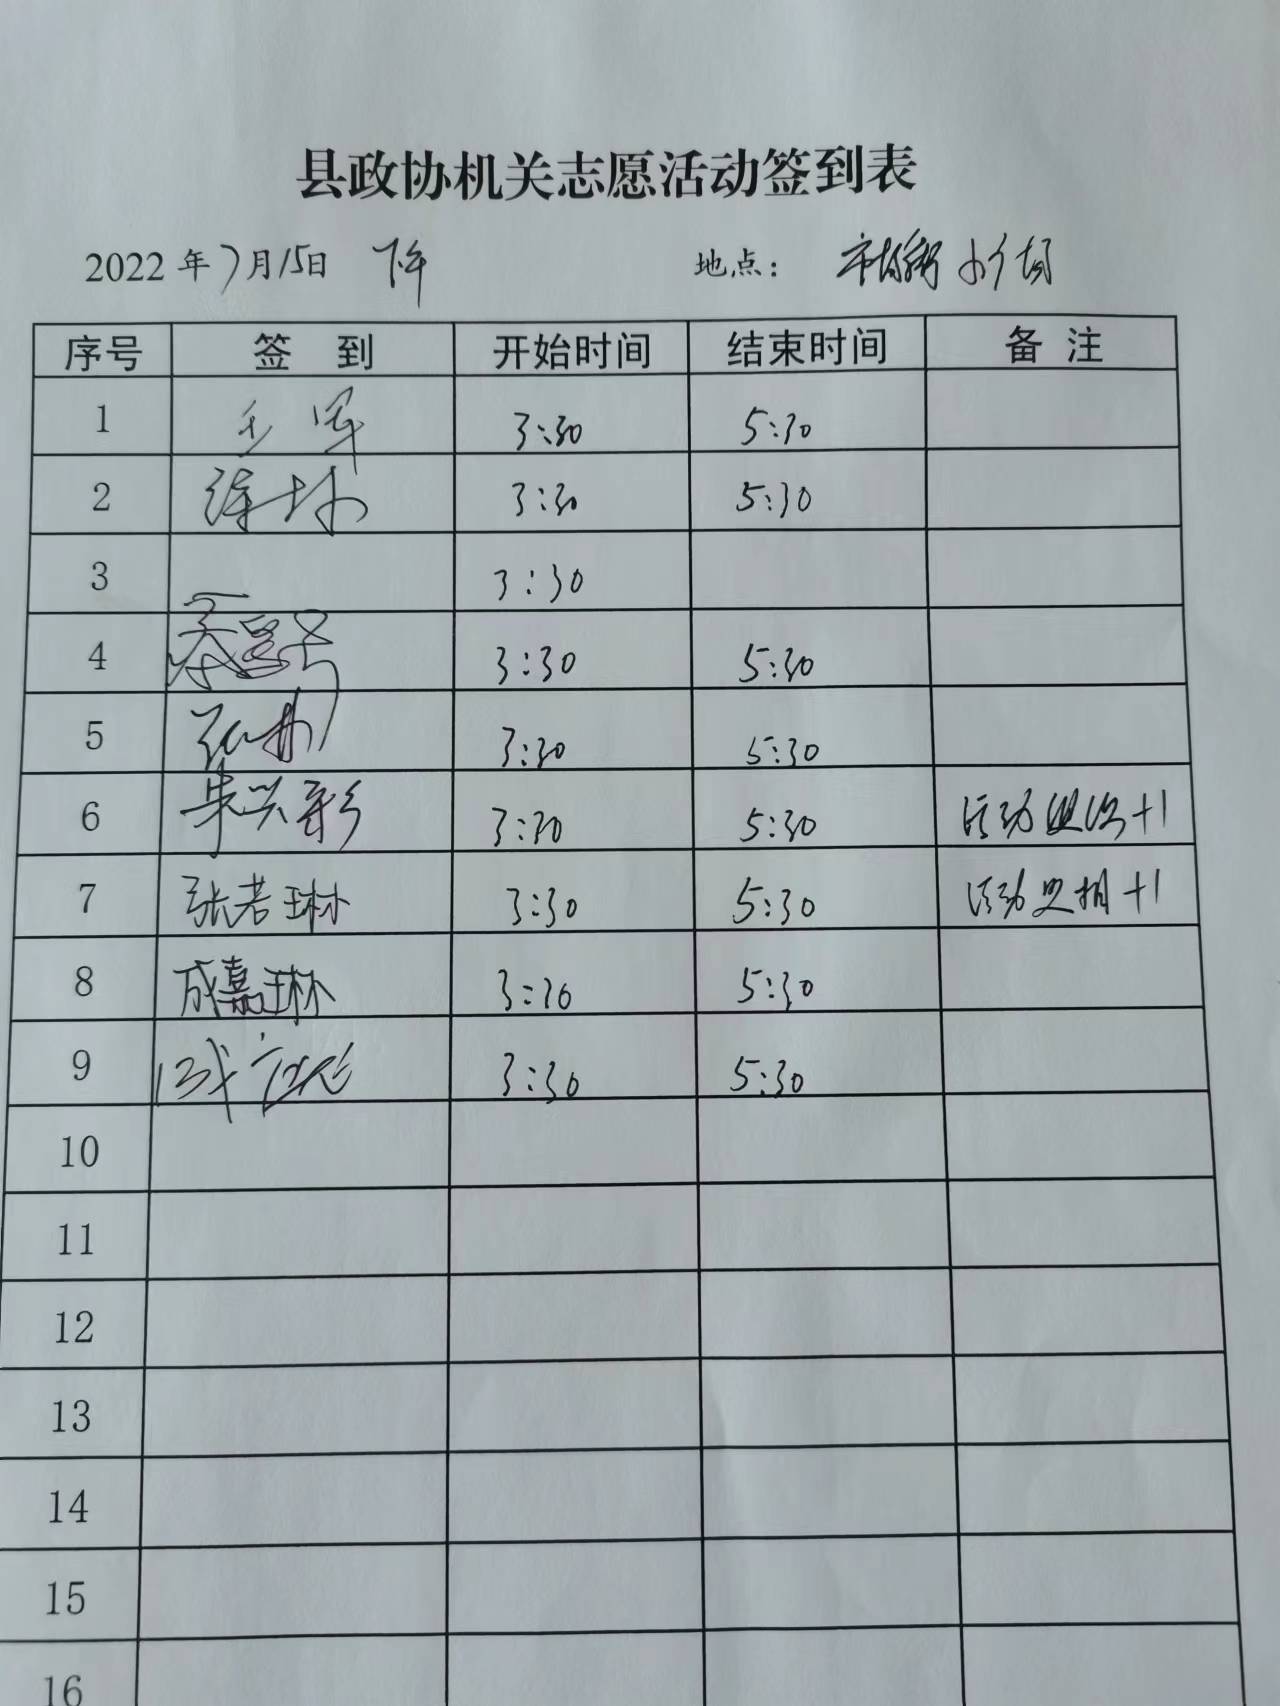 县政协机关志愿活动签到表
2022年7月15日 下午 地点：
序号 签 到 开始时间 结束时间 备 注
1 王军 3:30 5:30
2 3:30 5:30
3 3:30
4 3:30 5:30
5 3:30 5:30
6 朱兴彩 3:30 5:30 活动组织+1
7 张若琳 3:30 5:30 活动 +1
8 成嘉琳 3:30 5:30
9 3:30 5:30
10
11
12
13
14
15
16